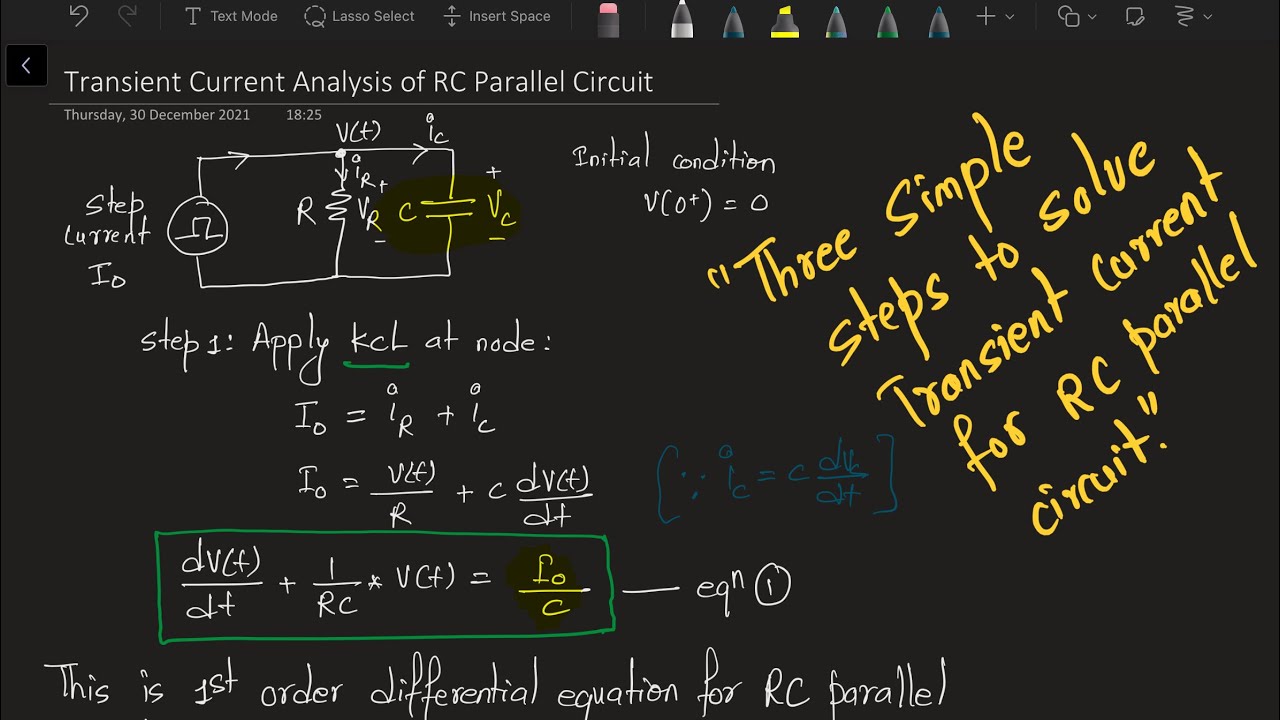 Text Mode
Lasso Select
Insert Space
Transient Current Analysis of RC Parallel Circuit
Thursday, 30 December 2021 18:25
V(t)
i_C
i_R
Step
Current
I_0
R
V_R
+
−
C
+
V_C
−
Initial condition
V(0⁺) = 0
"Three Simple
steps to solve
Transient Current
for RC parallel
circuit."
Step 1: Apply KCL at node:
I_0 = i_R + i_C
I_0 = V(t)/R + C dV(t)/dt
[∵ i_C = C dV_C/dt]
dV(t)/dt + 1/RC * V(t) = I_0/C — eqⁿ ①
This is 1st order differential equation for RC parallel